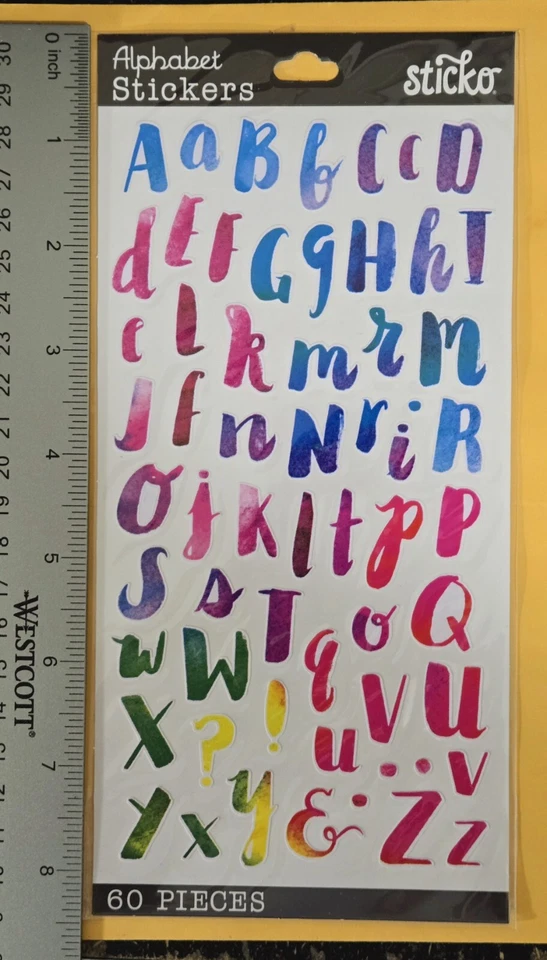 Alphabet
Stickers
sticko
A a B b C c D
d E F G g H h I
e L k m r M
J f n N r i R
O j K l t p P
S s T o Q
w W q V U
X ? ! u . . v
Y x y & . Z z
60 PIECES
0 inch
1
2
3
4
5
6
7
8
30
29
28
27
26
25
24
23
22
21
20
19
18
17
16
15
14
13
12
WESTCOTT